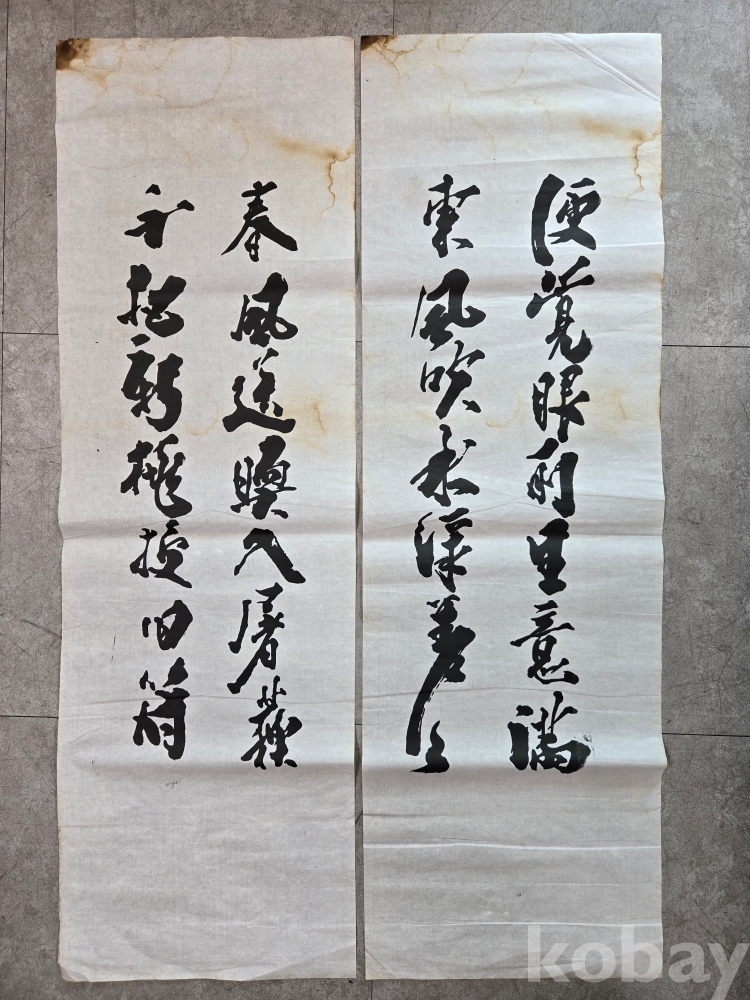 便覚眼前生意満
東風吹水緑差々
春風送暖入屠蘇
把新桃換旧符
kobay